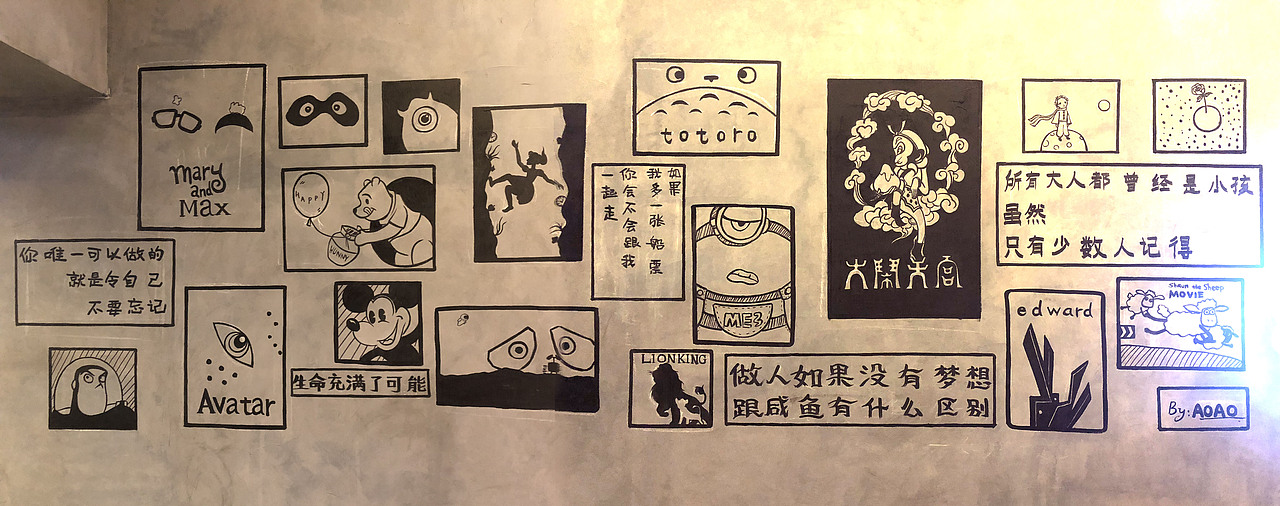 mary
and
Max
你唯一可以做的
就是令自己
不要忘记
Avatar
HAPPY
HUNNY
生命充满了可能
totoro
如果
我多一张船票
你会不会跟我
一起走
ME3
LIONKING
大鬧天宫
做人如果没有梦想
跟咸鱼有什么区别
所有大人都曾经是小孩
虽然
只有少数人记得
edward
Shaun the Sheep
MOVIE
By: AOAO